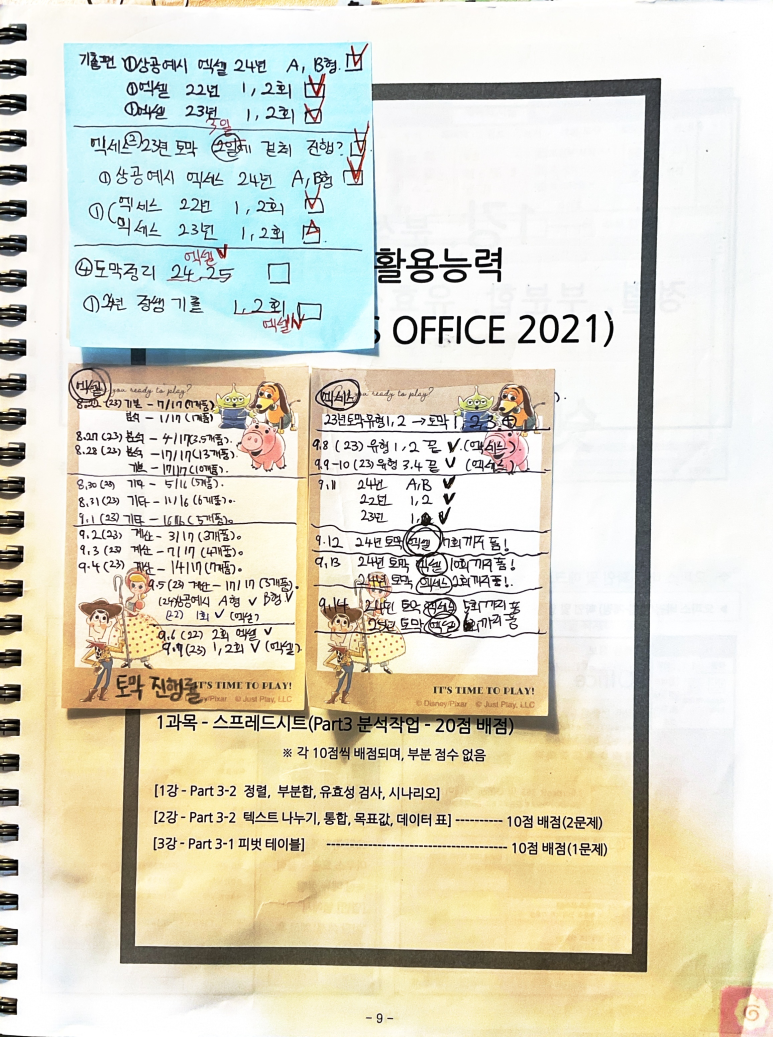 기출편 ①상공예시 엑셀 24년 A, B형.
①엑셀 22년 1, 2회
①엑셀 23년 1, 2회
3일
엑세스② 23년 토막 2일에 걸쳐 진행?
①상공예시 엑세스 24년 A, B형
①(엑세스 22년 1, 2회
엑세스 23년 1, 2회
엑셀✓
④토막정리 24, 25
①24년 정쌤 기출 1, 2회
엑셀✓
활용능력
S OFFICE 2021)
엑셀 you ready to play?
(23) 기본 - 17/17
분석 - 1/17 (1개품)
8.27 (23) 분석 - 4/17(3.5개품).
8.28 (23) 분석 - 17/17(13개품)
기본 - 17/17(10개품).
8.30 (23) 기타 - 5/16 (5개품).
8.31 (23) 기타 - 11/16 (6개품).
9.1 (23) 기타 - 16/16 (5개품).
9.2 (23) 계산 - 3/17 (3개품).
9.3 (23) 계산 - 7/17 (4개품).
9.4 (23) 계산 - 14/17 (7개품).
9.5 (23) 계산 - 17/17 (3개품).
(24)상공예시 A형 ✓ B형 ✓
(22) 1회 ✓ (엑셀)
9.6 (22) 2회 엑셀 ✓
9.7 (23) 1, 2회 ✓ (엑셀)
토막 진행률 IT'S TIME TO PLAY!
Disney/Pixar © Just Play, LLC
엑세스 you ready to play?
23년도막유형1, 2 → 토막 1, 2, 3, ④
9.8 (23) 유형 1, 2 끝 ✓ (엑세스)
9.9-10 (23) 유형 3.4 끝 ✓ (엑세스)
9.11 24년 A, B ✓
22년 1, 2 ✓
23년 1, ✓
9.12 24년 토막 엑셀 7회까지 품!
9.13 24년 토막 엑셀 10회까지 품!
24년 토막 엑세스 2회까지품!
9.14 24년 토막 엑세스 5회까지 품
25년 토막 엑셀 회까지 품
IT'S TIME TO PLAY!
© Disney/Pixar © Just Play, LLC
1과목 - 스프레드시트(Part3 분석작업 - 20점 배점)
※ 각 10점씩 배점되며, 부분 점수 없음
[1강 - Part 3-2 정렬, 부분합, 유효성 검사, 시나리오]
[2강 - Part 3-2 텍스트 나누기, 통합, 목표값, 데이터 표] ---------- 10점 배점(2문제)
[3강 - Part 3-1 피벗 테이블] -------------------------------------- 10점 배점(1문제)
- 9 -